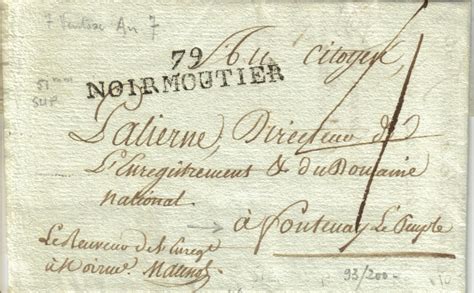 7 Ventose An 7
79 Au Citoyen,
51 mm
SUP
NOIRMOUTIER
Lalierne, Directeur de
L'Enregistrement & du Domaine
national.
à Fontenay Le Peuple
Le Receveur de l'Enreg.
à Noirm.
93/200-